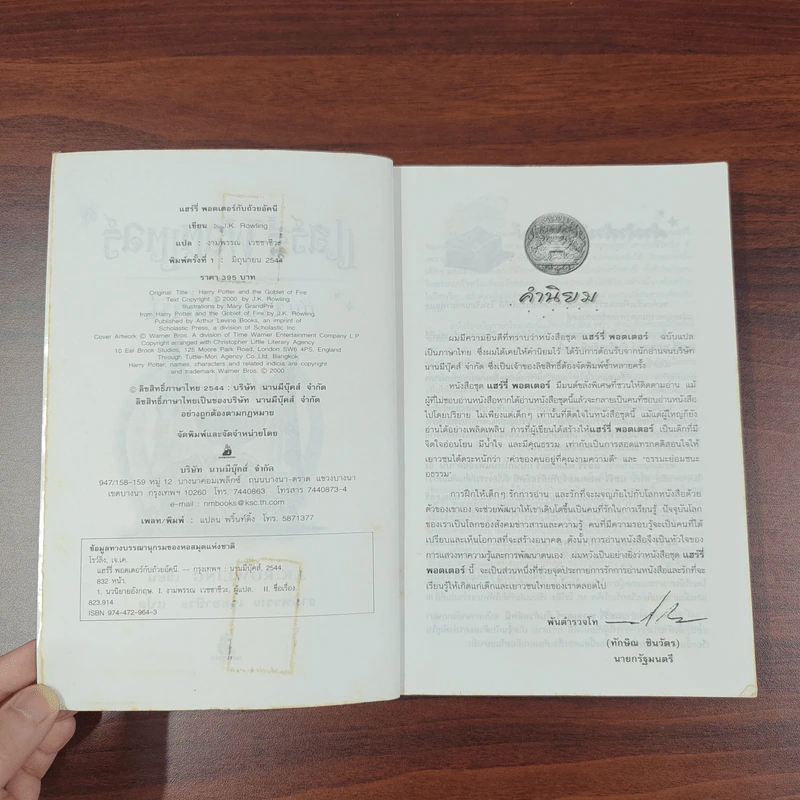 แฮร์รี่ พอตเตอร์กับถ้วยอัคนี
เขียน : J.K. Rowling
แปล : งามพรรณ เวชชาชีวะ
พิมพ์ครั้งที่ 1 : มิถุนายน 2544
ราคา 395 บาท
Original Title : Harry Potter and the Goblet of Fire
Text Copyright © 2000 by J.K. Rowling
Illustrations by Mary GrandPré
from Harry Potter and the Goblet of Fire by J.K. Rowling.
Published by Arthur Levine Books, an imprint of
Scholastic Press, a division of Scholastic Inc.
Cover Artwork © Warner Bros. A Division of Time Warner Entertainment Company L.P.
Copyright arranged with Christopher Little Literary Agency
10 Eel Brook Studios, 125 Moore Park Road, London SW6 4PS, England
Through Tuttle-Mori Agency Co., Ltd. Bangkok
Harry Potter, names, characters and related indicia are copyright
and trademark Warner Bros. © 2000
© ลิขสิทธิ์ภาษาไทย 2544 : บริษัท นานมีบุ๊คส์ จำกัด
ลิขสิทธิ์ภาษาไทยเป็นของบริษัท นานมีบุ๊คส์ จำกัด
อย่างถูกต้องตามกฎหมาย
จัดพิมพ์และจัดจำหน่ายโดย
บริษัท นานมีบุ๊คส์ จำกัด
947/158-159 หมู่ 12 บางนาคอมเพล็กซ์ ถนนบางนา-ตราด แขวงบางนา
เขตบางนา กรุงเทพฯ 10260 โทร. 7440863 โทรสาร 7440873-4
e-mail : nmbooks@ksc.th.com
เพลท/พิมพ์ : แปลน พริ้นท์ติ้ง โทร. 5871377
ข้อมูลทางบรรณานุกรมของหอสมุดแห่งชาติ
โรว์ลิ่ง, เจ.เค.
แฮร์รี่ พอตเตอร์กับถ้วยอัคนี. — กรุงเทพฯ : นานมีบุ๊คส์, 2544.
832 หน้า.
1. นวนิยายอังกฤษ. I. งามพรรณ เวชชาชีวะ, ผู้แปล. II. ชื่อเรื่อง
823.914
ISBN 974-472-964-3
คำนิยม
ผมมีความยินดีที่ทราบว่าหนังสือชุด แฮร์รี่ พอตเตอร์ ฉบับแปล
เป็นภาษาไทย ซึ่งผมได้เคยให้คำนิยมไว้ ได้รับการต้อนรับจากนักอ่านจนบริษัท
นานมีบุ๊คส์ จำกัด ซึ่งเป็นเจ้าของลิขสิทธิ์ต้องจัดพิมพ์ซ้ำหลายครั้ง
หนังสือชุด แฮร์รี่ พอตเตอร์ มีมนต์ขลังพิเศษที่ชวนให้ติดตามอ่าน แม้
ผู้ที่ไม่ชอบอ่านหนังสือหากได้อ่านหนังสือชุดนี้แล้วจะกลายเป็นคนที่ชอบอ่านหนังสือ
ไปโดยปริยาย ไม่เพียงแต่เด็กๆ เท่านั้นที่ติดใจในหนังสือชุดนี้ แม้แต่ผู้ใหญ่ก็ยัง
อ่านได้อย่างเพลิดเพลิน การที่ผู้เขียนได้สร้างให้แฮร์รี่ พอตเตอร์ เป็นเด็กที่มี
จิตใจอ่อนโยน มีน้ำใจ และมีคุณธรรม เท่ากับเป็นการสอดแทรกคติสอนใจให้
เยาวชนได้ตระหนักว่า "ค่าของคนอยู่ที่คุณงามความดี" และ "ธรรมะย่อมชนะ
อธรรม"
การฝึกให้เด็กๆ รักการอ่าน และรักที่จะผจญภัยไปกับโลกหนังสือด้วย
ตัวของเขาเอง จะช่วยพัฒนาให้เขาเติบโตขึ้นเป็นคนที่รักในการเรียนรู้ ปัจจุบันโลก
ของเราเป็นโลกของสังคมข่าวสารและความรู้ คนที่มีความรอบรู้จะเป็นคนที่ได้
เปรียบและเห็นโอกาสที่จะสร้างอนาคต ดังนั้น การอ่านหนังสือจึงเป็นหัวใจของ
การแสวงหาความรู้และการพัฒนาตนเอง ผมหวังเป็นอย่างยิ่งว่าหนังสือชุด แฮร์รี่
พอตเตอร์ นี้ จะเป็นส่วนหนึ่งที่ช่วยจุดประกายการรักการอ่านหนังสือและรักที่จะ
เรียนรู้ให้เกิดแก่เด็กและเยาวชนไทยของเราตลอดไป
พันตำรวจโท
(ทักษิณ ชินวัตร)
นายกรัฐมนตรี